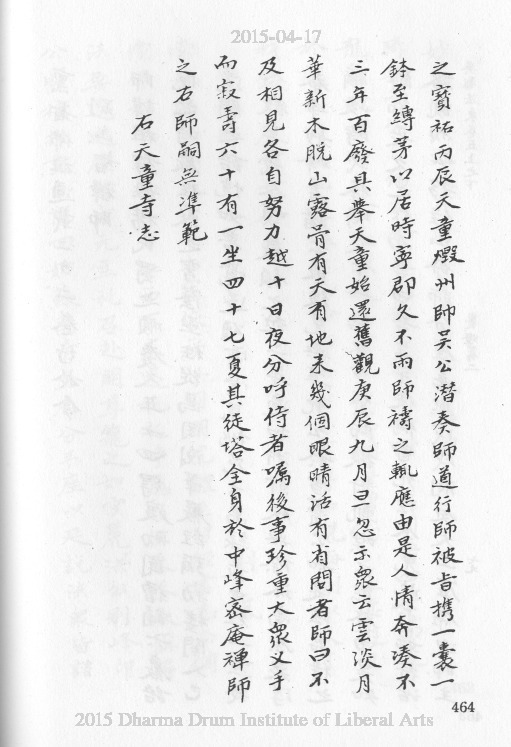 2015-04-17
之寶祐丙辰天童燬州帥吳公潛奏師道行師被旨携一囊一
鉢至縛茅以居時寧郡久不雨師禱之輒應由是人情奔湊不
三年百廢具舉天童始還舊觀庚辰九月旦忽示衆云雲淡月
華新木脫山露骨有天有地來幾個眼睛活有省問者師曰不
及相見各自努力越十日夜分呼侍者囑後事珍重大衆乂手
而寂壽六十有一坐四十七夏其徒塔全身於中峰密庵禅師
之右師嗣無準範
右天童寺志
464
2015 Dharma Drum Institute of Liberal Arts